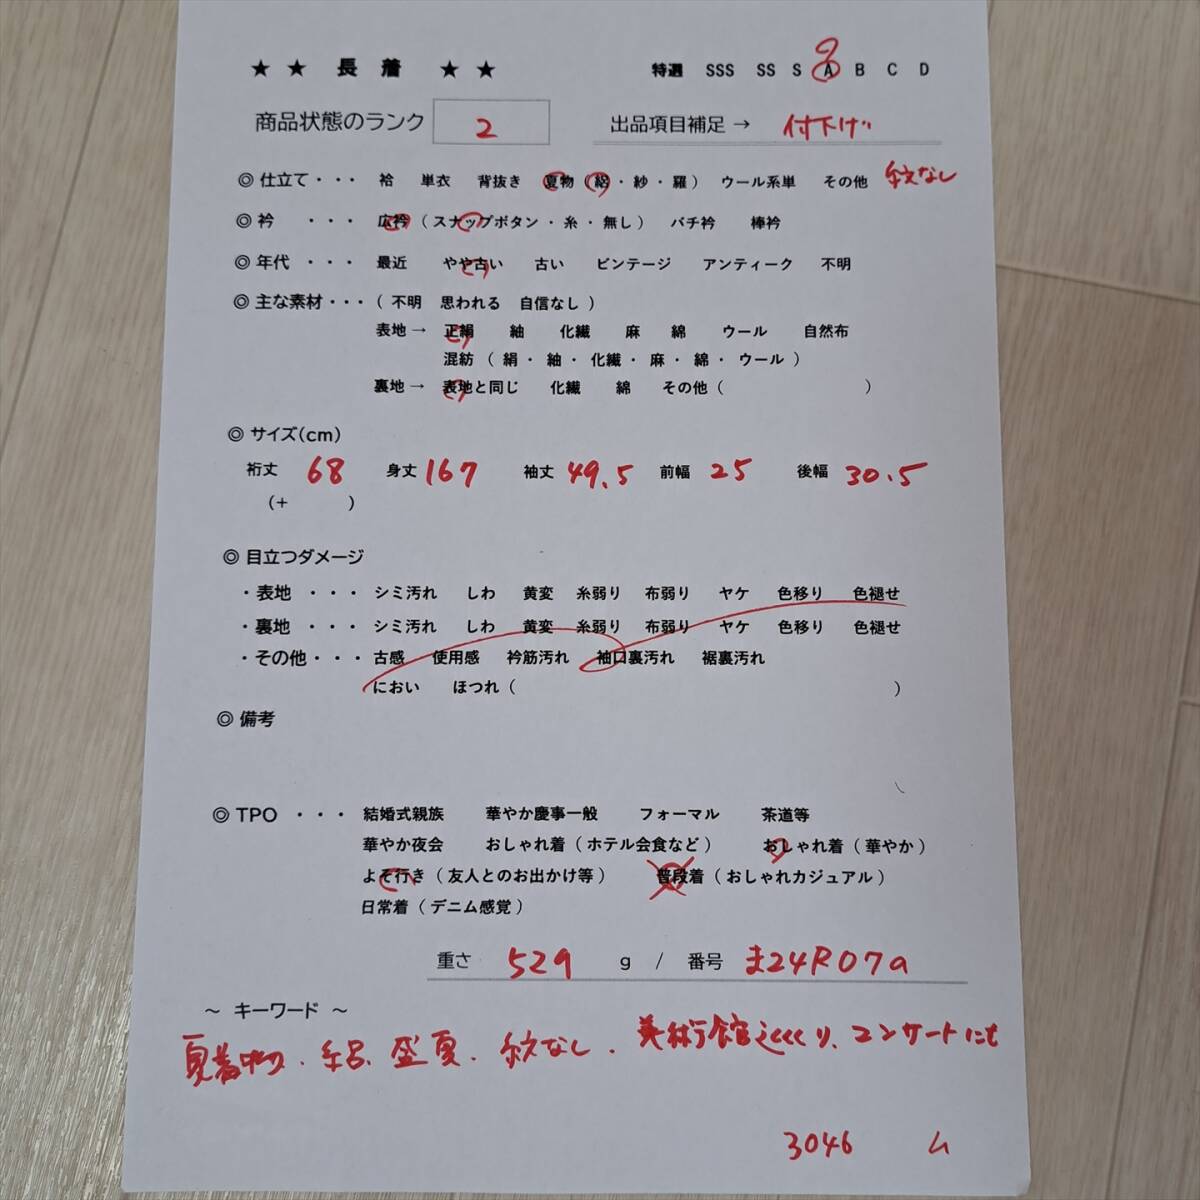 ★ ★ 長 着 ★ ★ 特選 SSS SS S A B C D
商品状態のランク 2 出品項目補足 → 付下げ
◎ 仕立て・・・ 袷 単衣 背抜き 夏物(絽・紗・羅) ウール系単 その他 紋なし
◎ 衿 ・・・ 広衿(スナップボタン・糸・無し) バチ衿 棒衿
◎ 年代・・・ 最近 やや古い 古い ビンテージ アンティーク 不明
◎ 主な素材・・・( 不明 思われる 自信なし )
表地→ 正絹 紬 化繊 麻 綿 ウール 自然布
混紡 ( 絹・紬・化繊・麻・綿・ウール )
裏地→ 表地と同じ 化繊 綿 その他( )
◎ サイズ(cm)
裄丈 68 身丈 167 袖丈 49.5 前幅 25 後幅 30.5
(+ )
◎ 目立つダメージ
・表地 ・・・ シミ汚れ しわ 黄変 糸弱り 布弱り ヤケ 色移り 色褪せ
・裏地 ・・・ シミ汚れ しわ 黄変 糸弱り 布弱り ヤケ 色移り 色褪せ
・その他・・・ 古感 使用感 衿筋汚れ 袖口裏汚れ 裾裏汚れ
におい ほつれ( )
◎ 備考
◎ TPO ・・・ 結婚式親族 華やか慶事一般 フォーマル 茶道等
華やか夜会 おしゃれ着(ホテル会食など) おしゃれ着(華やか)
よそ行き(友人とのお出かけ等) 普段着(おしゃれカジュアル)
日常着(デニム感覚)
重さ 529 g / 番号 ま24R07a
～ キーワード ～
夏着物、絽、盛夏、紋なし、美術館めぐり、コンサートにも
3046 ム